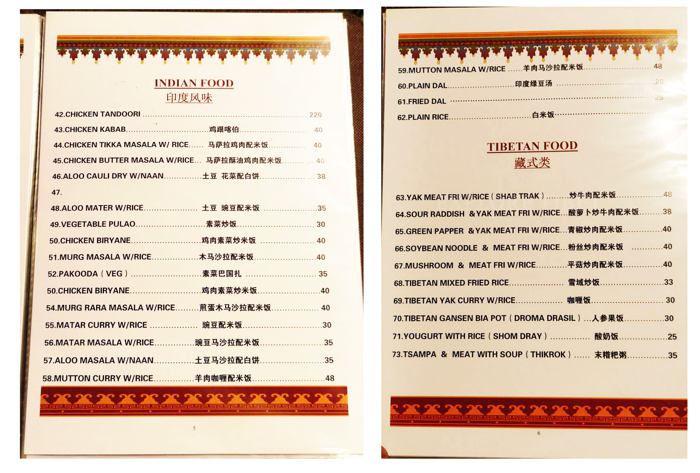 INDIAN FOOD
印度风味
42.CHICKEN TANDOORI ........ 220
43.CHICKEN KABAB........ 鸡跟喀伯........ 40
44.CHICKEN TIKKA MASALA W/ RICE..... 马萨拉鸡肉配米饭........ 40
45.CHICKEN BUTTER MASALA W/RICE... 马萨拉酥油鸡肉配米饭........ 40
46.ALOO CAULI DRY W/NAAN........ 土豆 花菜配白饼........ 38
47.
48.ALOO MATER W/RICE........ 土豆 豌豆配米饭........ 35
49.VEGETABLE PULAO........ 素菜炒饭........ 30
50.CHICKEN BIRYANE........ 鸡肉素菜炒米饭........ 40
51.MURG MASALA W/RICE........ 木马沙拉配米饭........ 40
52.PAKOODA ( VEG )........ 素菜巴国扎........ 35
50.CHICKEN BIRYANE........ 鸡肉素菜炒米饭........ 40
54.MURG RARA MASALA W/RICE........ 煎蛋木马沙拉配米饭........ 40
55.MATAR CURRY W/RICE ........ 豌豆配米饭........ 30
56.MATAR MASALA W/RICE........ 豌豆马沙拉配米饭........ 35
57.ALOO MASALA W/NAAN........ 土豆马沙拉配白饼........ 35
58.MUTTON CURRY W/RICE........ 羊肉咖喱配米饭........ 48
5
59.MUTTON MASALA W/RICE ...... 羊肉马沙拉配米饭........ 48
60.PLAIN DAL........ 印度绿豆汤
61.FRIED DAL ........
62.PLAIN RICE........ 白米饭........
TIBETAN FOOD
藏式类
63.YAK MEAT FRI W/RICE ( SHAB TRAK ) ........ 炒牛肉配米饭........ 48
64.SOUR RADDISH &YAK MEAT FRI W/RICE... 酸萝卜炒牛肉配米饭........ 38
65.GREEN PAPPER &YAK MEAT FRI W/RICE... 青椒炒肉配米饭........ 40
66.SOYBEAN NOODLE & MEAT FRI W/RICE... 粉丝炒肉配米饭 ........ 40
67.MUSHROOM & MEAT FRI W/RICE........ 平菇炒肉配米饭........ 40
68.TIBETAN MIXED FRIED RICE........ 雪域炒饭........ 33
69.TIBETAN YAK CURRY W/RICE........ 咖喱饭........ 30
70.TIBETAN GANSEN BIA POT ( DROMA DRASIL ) ...人参果饭........ 30
71.YOUGURT WITH RICE ( SHOM DRAY ) ........ 酸奶饭........ 25
73.TSAMPA & MEAT WITH SOUP ( THIKROK ) ...... 末糌粑粥........ 35
6